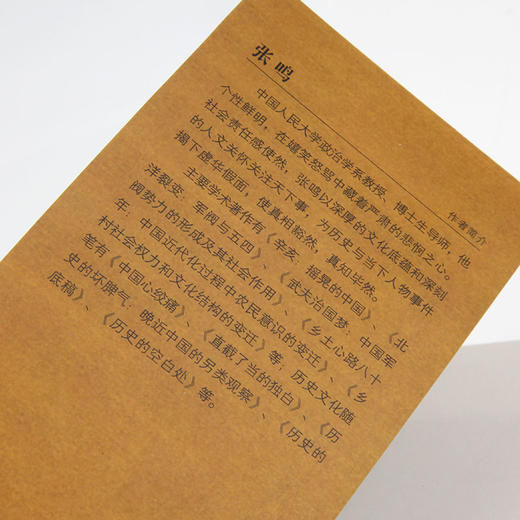 作者简介
张 鸣
中国人民大学政治学系教授、博士生导师，他
个性鲜明，在嬉笑怒骂中藏着严肃的悲悯之心。
社会责任感使然，张鸣以深厚的文化底蕴和深刻
的人文关怀关注天下事，为历史与当下人物事件
揭下虚华假面，使真相豁然，真知毕然。
主要学术著作有《辛亥：摇晃的中国》、《北
洋裂变：军阀与五四》、《武夫治国梦：中国军
阀势力的形成及其社会作用》、《乡土心路八十
年：中国近代化过程中农民意识的变迁》、《乡
村社会权力和文化结构的变迁》等，历史文化随
笔有《中国心绞痛》、《直截了当的独白》、《历
史的坏脾气：晚近中国的另类观察》、《历史的
底稿》、《历史的空白处》等。